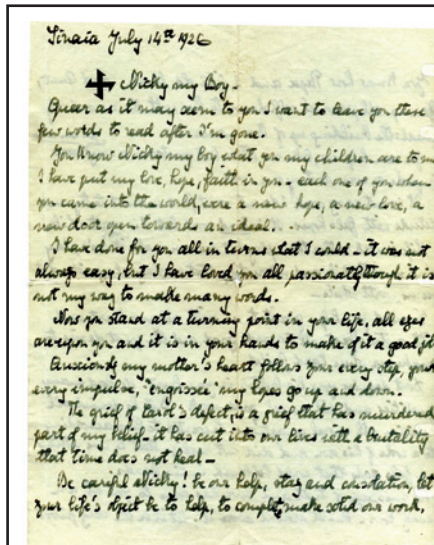 Sinaia July 14th 1926
Nicky my Boy -
Queer as it may seem to you I want to leave you these
few words to read after I'm gone.
You know Nicky my boy what you my children are to me
I have put my love, hope, faith in you - each one of you when
you came into the world, were a new hope, a new love, a
new door open towards an ideal.
I have done for you all in turns what I could - it was not
always easy, but I have loved you all passionately though it is
not my way to make many words.
Now you stand at a turning point in your life, all eyes
are upon you and it is in your hands to make of it a good job
Anxiously my mother's heart follows your every step, your
every impulse, my hopes go up and down.
The grief of Carol's defect, is a grief that has murdered
part of my belief - it has cut into our lives with a brutality
that time does not heal -
Be careful Nicky! be our help, stay and consolation, let
your life's object be to help, to complete, make solid our work,